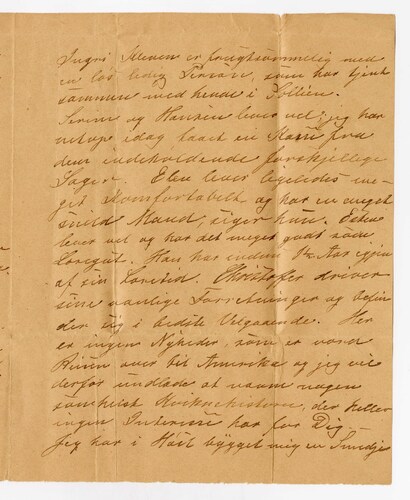 Ingri Moen er frugtsommelig med
en løs ledig Person, som har tjent
sammen med hende i Sollien.
og Hansen lever vel; jeg har
netop idag faaet en fra
dem indeholdende forskjellige
Sager. Eline lever ligeledes me-
get Komfortabelt og har en meget
snild Mand, siger hun.
lever vel og har det meget godt som
Han har endnu 1½ Aar igjen
af sin Læretid. Christoffer driver
sine vanlige Forretninger og befin-
der sig i bedste Velgaaende. Her
er ingen Nyheder, som er værd
over til Amerika og jeg vil
derfor undlade at nævne nogen
somhelst der heller
ingen Interesse har for Dig. —
Jeg har i Høst bygget mig en Smedje